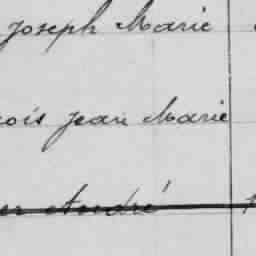 Joseph Marie
ois Jean Marie
er André